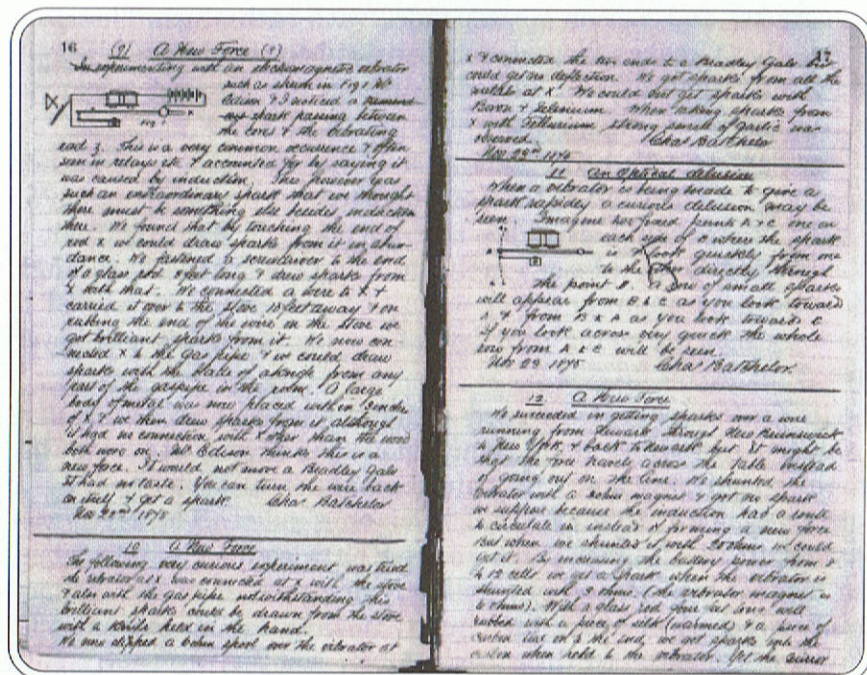 16
(9) A New Force (1)
In experimenting with an electromagnetic vibrator
such as shown in Fig 1 Mr
Edison & I noticed a
spark passing between
Fig 1
the cores & the vibrating
rod. This is a very common occurrence & often
seen in relays etc & accounted for by saying it
was caused by induction. This however was
such an extraordinary spark that we thought
there must be something else besides induction
here. We found that by touching the end of
rod x we could draw sparks from it in abun-
dance. We fastened a screwdriver to the end
of a glass rod feet long & drew sparks from
with that. We connected a wire to X &
carried it over to the stove 10 feet away & on
rubbing the end of the wire on the stove we
got brilliant sparks from it. We now con-
nected x to the gas pipe & we could draw
sparks with the blade of a knife from any
part of the gaspipe in the room. A large
body of metal was now placed within
of x & we then drew sparks from it although
it had no connection with x other than the wood
both were on. Mr Edison thinks this is a
new force. It would not move a Bradley Galv
It had no taste. You can turn the wire back
on itself & get a spark. Chas Batchelor
Nov 22nd 1875
10 A New Force
The following very curious experiment was tried
the vibrator at x was connected at with the stove
& also with the gas pipe notwithstanding this
brilliant sparks could be drawn from the stove
with a knife held in the hand.
We now slipped a spool over the vibrator at
17
x & connected the two ends to a Bradley Galv but
could get no deflection. We got sparks from all the
metals at X. We could not get sparks with
Boron & Selenium. When taking sparks from
x with Tellurium, strong smell of garlic was
observed. Chas Batchelor
Nov 23rd 1875
11 An Optical delusion
When a vibrator is being made to give a
spark rapidly a curious delusion may be
seen. Imagine two fixed points A & C one on
each side of B where the spark
is & look quickly from one
to the other directly through
the point B. A row of small sparks
will appear from B & C as you look toward
A & from B & A as you look towards C
if you look across very quick the whole
row from A & C will be seen
Nov 23 1875 Chas Batchelor
12 A New Force
We succeeded in getting sparks over a wire
running from Newark through New Brunswick
to New York & back to Newark but it might be
that the force travels across the table instead
of going out on the line. We shunted the
vibrator with a magnet & got no spark
we suppose because the induction had a
to circulate in instead of forming a new force
But when we shunted it with 20 ohms we could
get it. By increasing the battery power from
to 12 cells we get a spark when the vibrator is
shunted with 3 ohms. (The vibrator magnet is
6 ohms). With a glass rod four feet long well
rubbed with a piece of silk (warmed) & a piece of
carbon on the end, we got sparks into the
carbon when held to the vibrator. Yet the